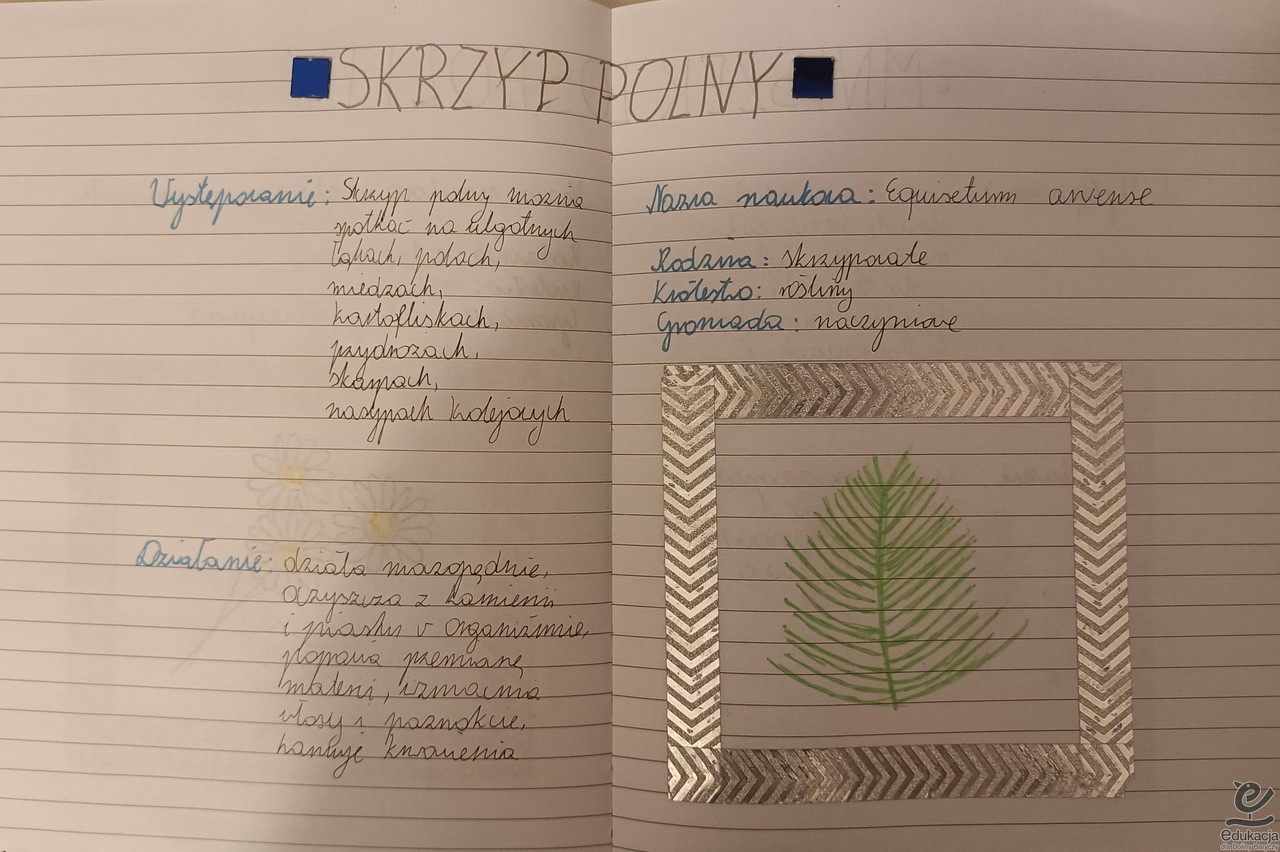 SKRZYP POLNY
Występowanie: Skrzyp polny można
spotkać na wilgotnych
łąkach, polach,
miedzach,
kartofliskach,
przydrożach,
skarpach,
nasypach kolejowych
Działanie: działa moczopędnie,
oczyszcza z kamieni
i piasku w organiźmie,
poprawia przemianę
materii, wzmacnia
włosy i paznokcie,
hamuje krwawienia
Nazwa naukowa: Equisetum arvense
Rodzina: skrzypowate
Królestwo: rośliny
Gromada: naczyniowe
Edukacja
dla Doliny Baryczy